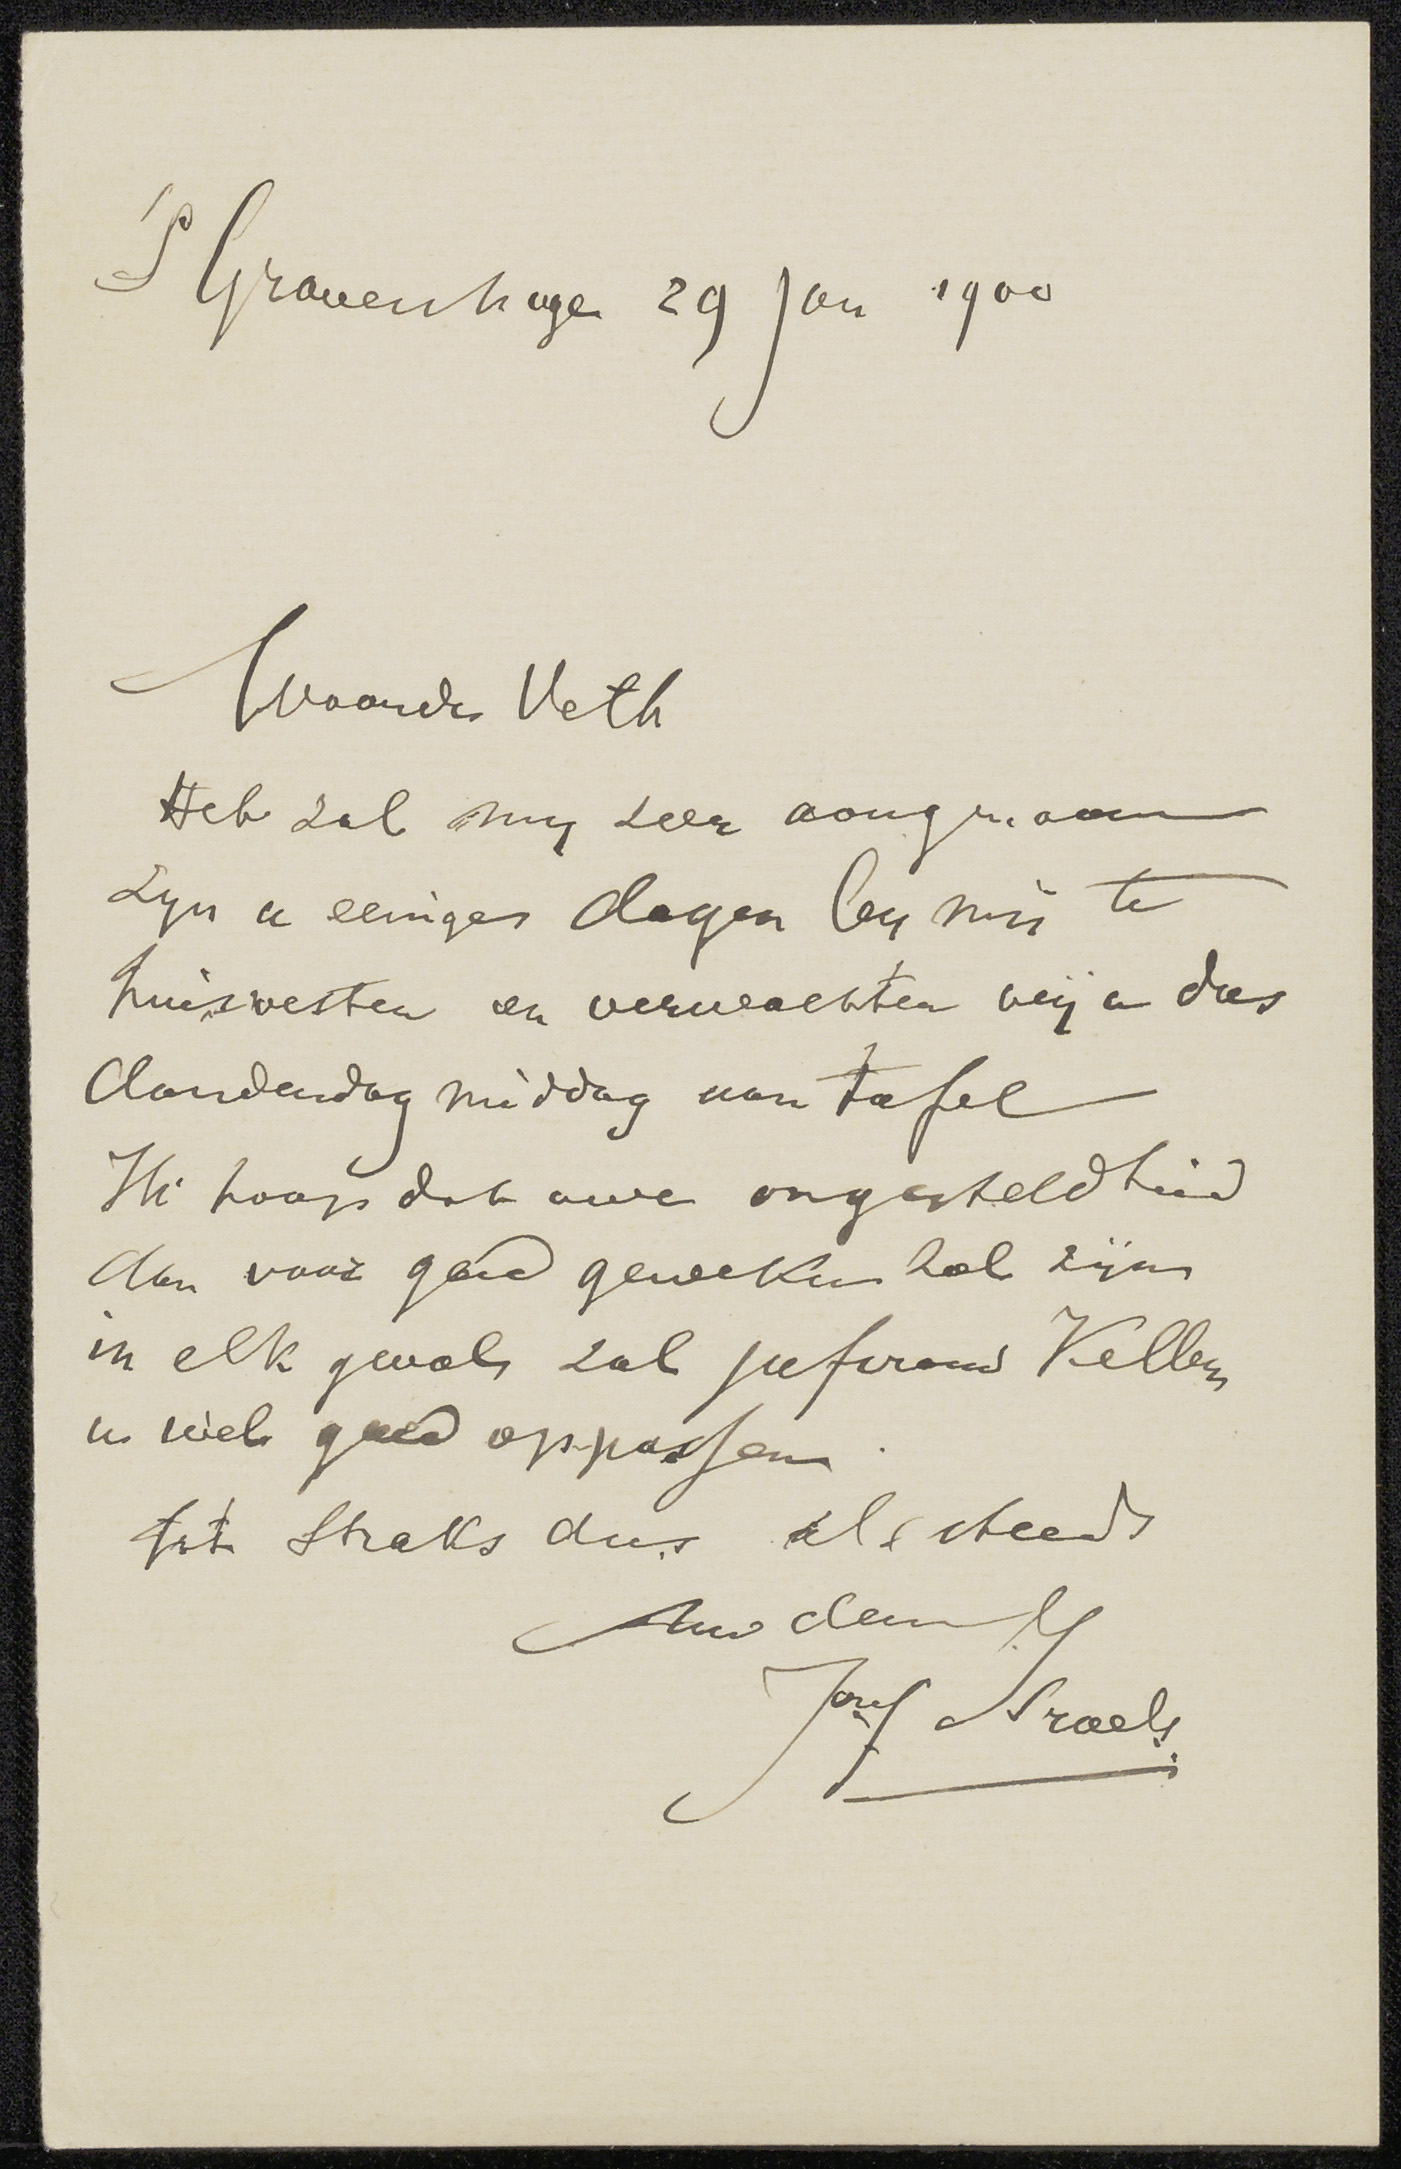 'S Gravenhage 29 Jan 1900
Waarde Veth
Het zal my zeer aangenaam
zyn u eeniges dagen by mij te
huisvesten en verwachten wij u dus
donderdag middag aan tafel
Ik hoop dat uwe ongesteldheid
dan voor goed geweken zal zijn
in elk geval zal jufvrouw Keller
u wel goed oppassen.
tot straks dus als steeds
Uw
Jozef Israels